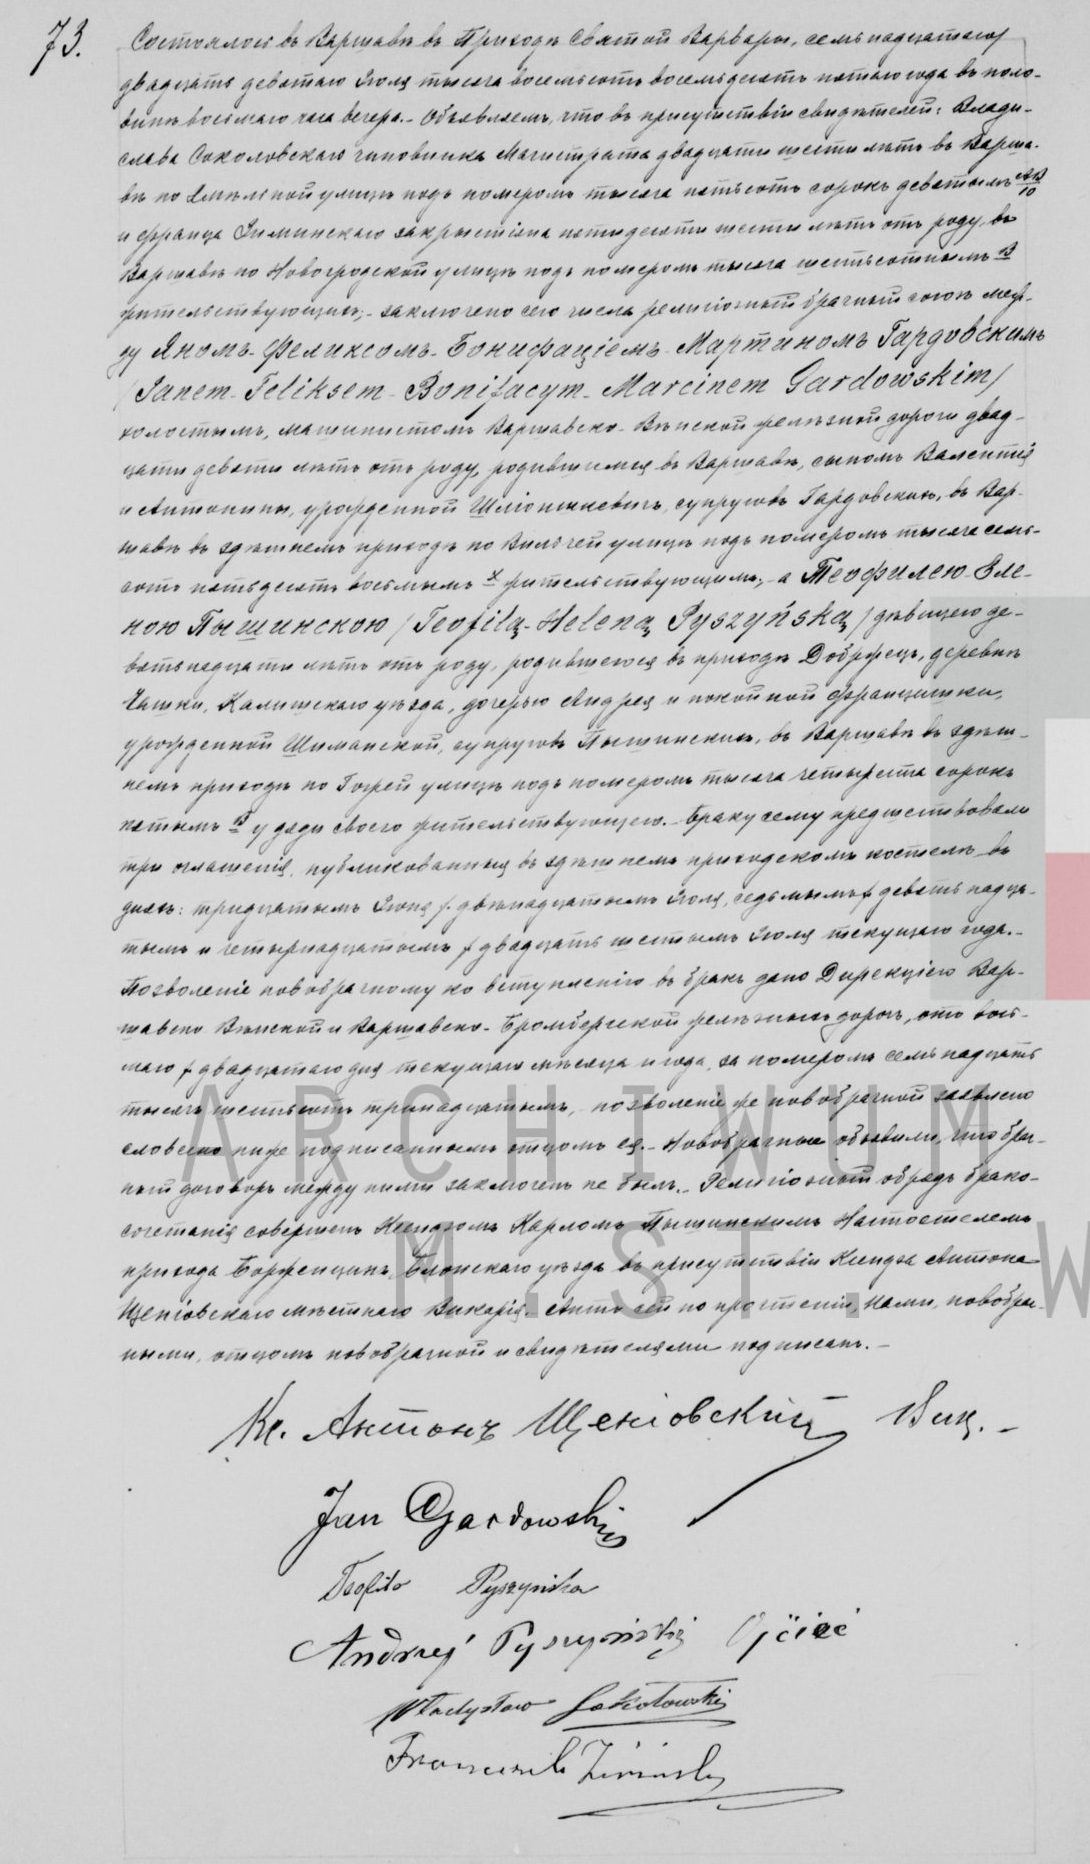 73.
Состоялось въ Варшавѣ въ Приходѣ Святой Варвары, семьнадцатаго/
двадцать девятаго Іюля тысяча восемьсотъ восемьдесятъ пятаго года въ поло-
винѣ восьмаго часа вечера.- Объявляемъ, что въ присутствіи свидѣтелей: Влади-
слава Соколовскаго чиновника Магистрата двадцати шести лѣтъ въ Варша-
вѣ по Хмѣльной улицѣ подъ номеромъ тысяча пятьсотъ сорокъ девятымъ АВ/10
и Франца Зиминскаго закристіана пятидесяти шести лѣтъ отъ роду, въ
Варшавѣ по Новогродской улицѣ подъ номеромъ тысяча шестьсотнымъ В
жительствующихъ,- заключено сего числа религіозный брачный союзъ меж-
ду Яномъ-Феликсомъ-Бонифаціемъ-Мартиномъ Гардовскимъ
/Janem-Feliksem-Bonifacym-Marcinem Gardowskim/
холостымъ, машинистомъ Варшавско-Вѣнской желѣзной дороги двад-
цати девяти лѣтъ отъ роду, родившимся въ Варшавѣ, сыномъ Валентія
и Антонины, урожденной супруговъ Гардовскихъ, въ Вар-
шавѣ въ здѣшнемъ приходѣ по Вильчей улицѣ подъ номеромъ тысяча семь-
сотъ пятьдесятъ восьмымъ жительствующимъ,- а Теофилею-Еле-
ною Пышинскою /Teofilą-Heleną Pyszyńską/ дѣвицею де-
вятьнадцати лѣтъ отъ роду, родившеюся въ приходѣ Добржецъ, деревнѣ
Чашки, Калишскаго уѣзда, дочерью Андрея и покойной Францишки,
урожденной Шиманской, супруговъ Пышинскихъ, въ Варшавѣ въ здѣш-
немъ приходѣ по Гожей улицѣ подъ номеромъ тысяча четыреста сорокъ
пятымъ В у дяди своего жительствующего.- Браку сему предшествовали
три оглашенія, публикованныя въ здѣшнемъ приходскомъ костелѣ въ
дняхъ: тридцатымъ Іюня /. двѣнадцатымъ Іюля, седьмымъ / девятьнадца-
тымъ и четырнадцатымъ / двадцать шестымъ Іюля текущаго года.-
Позволеніе новобрачному ко вступленію въ бракъ дано Дирекціею Вар-
шавско Вѣнской и Варшавско-Бромбергской желѣзныхъ дорогъ, отъ вось-
маго / двадцатаго дня текущаго мѣсяца и года, за номеромъ семьнадцать
тысячъ шестьсотъ тринадцатымъ, позволеніе же новобрачной заявлено
словесно ниже подписаннымъ отцомъ ея.- Новобрачные объявили, что брач-
ный договоръ между ними заключенъ не былъ.- Религіозный обрядъ брако-
сочетанія совершенъ Ксендзомъ Карломъ Пышинскимъ Настоятелемъ
прихода Борженцинъ, Блонскаго уѣзда въ присутствіи Ксендза Антона
Щеніовскаго мѣстнаго Викарія.- Актъ сей по прочтеніи, Нами, новобрач-
ными, отцомъ новобрачной и свидѣтелями подписанъ.-
Кс. Антонъ Щеніовскій Вик.-
Jan Gardowski
Teofila Pyszyńska
Andrzej Pyszyński Ojciec
Władysław Sokołowski
Franciszek Zimiński
ARCHIWUM
M.ST. W